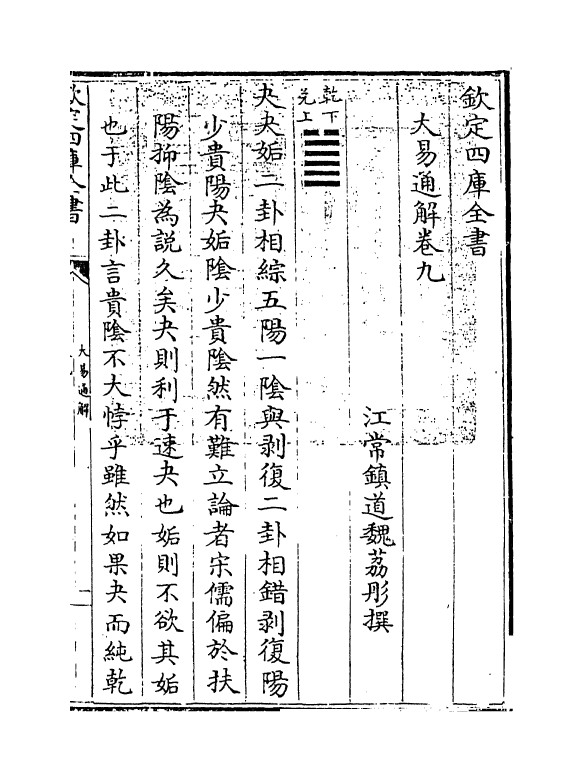 欽定四庫全書
大易通解卷九
江常鎮道魏茘彤撰
乾下
兌上
夬夬姤二卦相綜五陽一陰與剥復二卦相錯剥復陽
少貴陽夬姤陰少貴陰然有難立論者宋儒偏於扶
陽抑陰為説久矣夬則利于速夬也姤則不欲其姤
也于此二卦言貴陰不大悖乎雖然如果夬而純乾
欽定四庫全書
大易通解
一